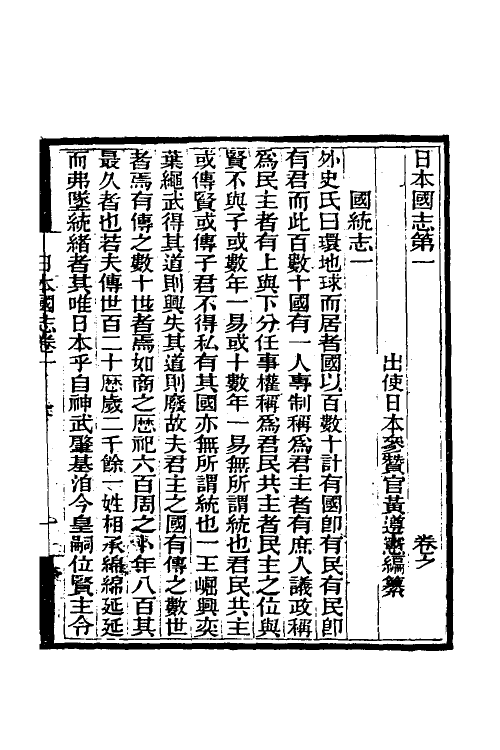 日本國志第一
出使日本參贊官黃遵憲編纂
國統志一
外史氏曰環地球而居者國以百數十計有國卽有民有民卽
有君而此百數十國有一人專制稱爲君主者有庶人議政稱
爲民主者有上與下分任事權稱爲君民共主者民主之位與
賢不與子或數年一易或十數年一易無所謂統也君民共主
或傳賢或傳子君不得私有其國亦無所謂統也一王崛興奕
葉繩武得其道則興失其道則廢故夫君主之國有傳之數世
者焉有傳之數十世者焉如商之歷祀六百周之卜年八百其
最久者也若夫傳世百二十歷歲二千餘一姓相承綿綿延延
而弗墜統緒者其唯日本乎自神武肇基洎今皇嗣位賢主令
日本國志卷一